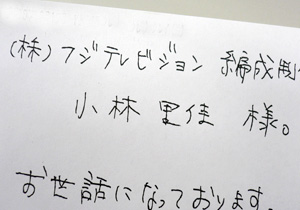 (株)フジテレビジョン 編成制
小林 里佳 様。
お世話になっております。